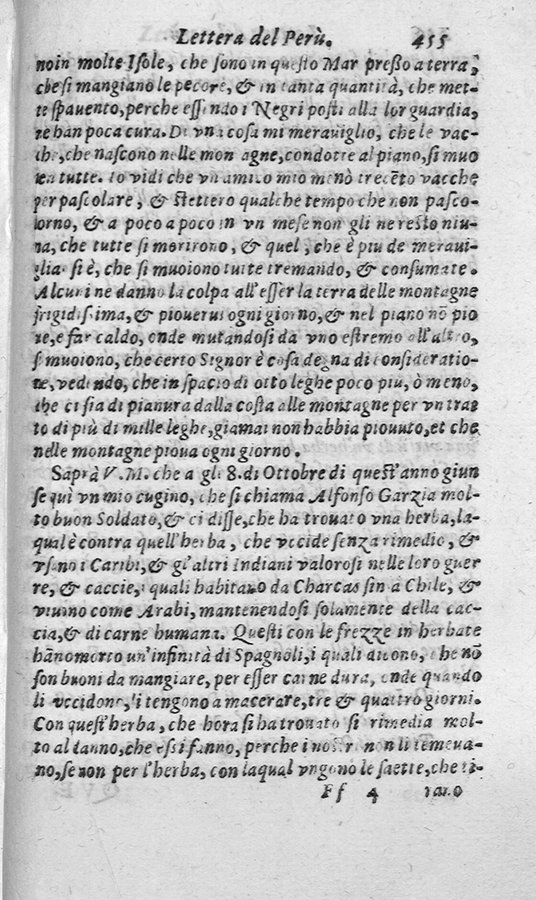 Lettera del Perù. 455
noin molte Isole, che sono in questo Mar presso a terra,
che si mangiano le pecore, & in tanta quantità, che met-
te spauento, perche essendo i Negri posti alla lor guardia,
ne han poca cura. Di vna cosa mi merauiglio, che le vac-
che, che nascono nelle montagne, condotte al piano, si muo
iea tutte. Io vidi che vn amico mio menò trecẽto vacche
per pascolare, & stettero qualche tempo che non pasco-
iorno, & a poco a poco in vn mese non gli ne restò niu-
na, che tutte si morirono, & quel, che è piu de meraui-
glia si è, che si muoiono tutte tremando, & consumate.
Alcuni ne danno la colpa all'esser la terra delle montagne
frigidissima, & piouerui ogni giorno, & nel piano nõ pio
re, e far caldo, onde mutandosi da vno estremo all'altro,
si muoiono, che certo Signor è cosa degna di consideratio-
ne, vedendo, che in spacio di otto leghe poco piu, ò meno,
che ci sia di pianura dalla costa alle montagne per vn trat
to di più di mille leghe, giamai non habbia piouuto, et che
nelle montagne pioua ogni giorno.
Saprà V. M. che a gli 8. di Ottobre di quest'anno giun
se quì vn mio cugino, che si chiama Alfonso Garzia mol-
to buon Soldato, & ci disse, che ha trouato vna herba, la-
qual è contra quell'herba, che vccide senza rimedio, &
vsano i Caribi, & gl'altri Indiani valorosi nelle loro guer
re, & caccie, quali habitano da Charcas sin a Chile, &
viuino come Arabi, mantenendosi solamente della cac-
cia, & di carne humana. Questi con le frezze in herbate
hãno morto un'infinità di Spagnoli, i quali dicono, che nõ
son buoni da mangiare, per esser carne dura, onde quando
li vccidono, li tengono a macerare, tre & quattro giorni.
Con quest'herba, che hora si ha trouato si rimedia mol-
to al danno, che essi fanno, perche i nostri non li temeua-
no, se non per l'herba, con laqual vngono le saette, che ti-
Ff 4 rano